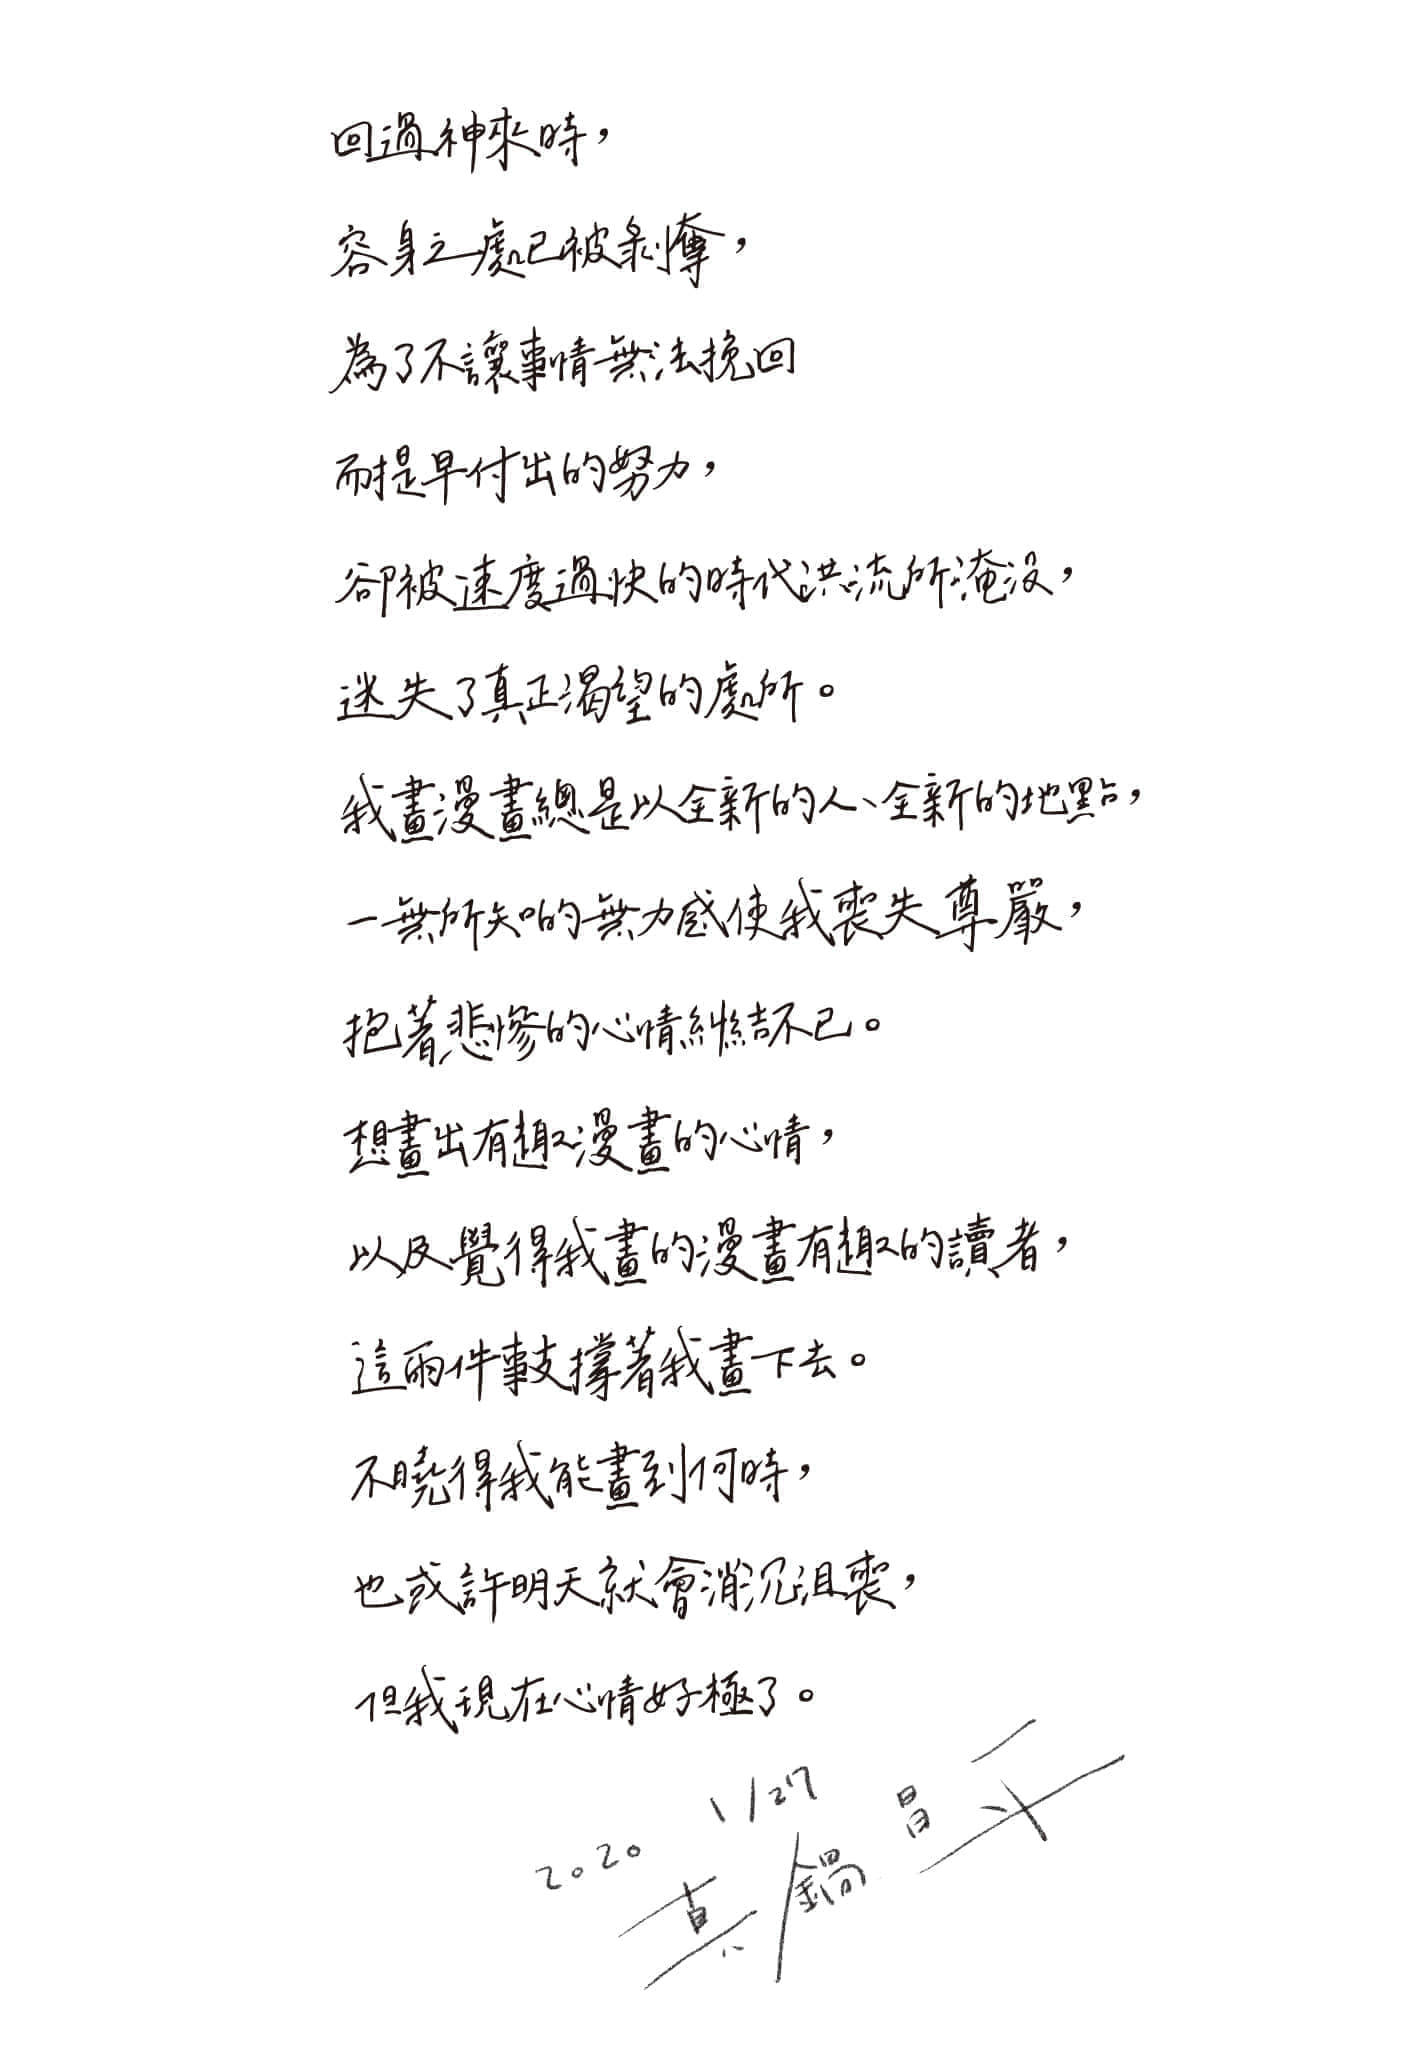 回過神來時，
容身之處已被剝奪，
為了不讓事情無法挽回
而提早付出的努力，
卻被速度過快的時代洪流所淹沒，
迷失了真正渴望的處所。
我畫漫畫總是以全新的人、全新的地點，
一無所知的無力感使我喪失尊嚴，
抱著悲慘的心情糾結不已。
想畫出有趣漫畫的心情，
以及覺得我畫的漫畫有趣的讀者，
這兩件事支撐著我畫下去。
不曉得我能畫到何時，
也或許明天就會消沉沮喪，
但我現在心情好極了。
2020 1/27
真鍋昌平